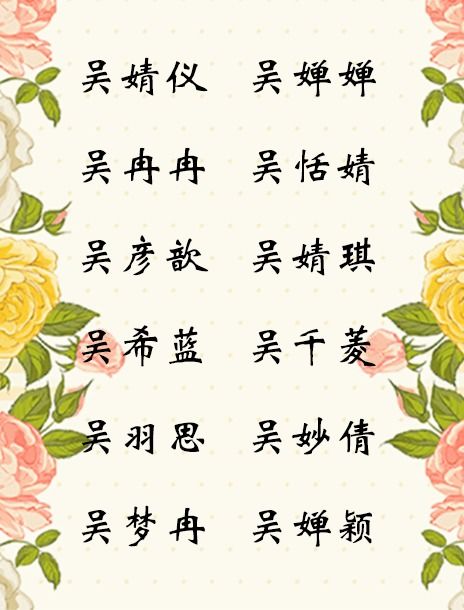 吴婧仪 吴婵婵
吴冉冉 吴恬婧
吴彦歆 吴婧琪
吴希蓝 吴千菱
吴羽思 吴妙倩
吴梦冉 吴婵颖